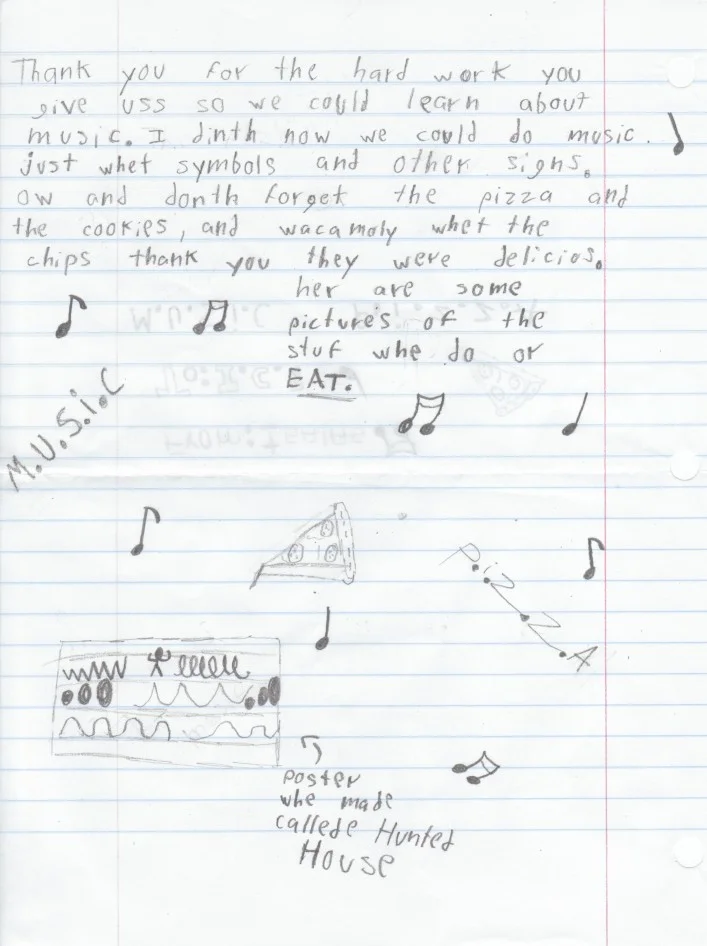 Thank you for the hard work you
give uss so we could learn about
music. I dinth now we could do music
just whet symbols and other signs.
ow and donth forget the pizza and
the cookies, and wacamoly whet the
chips thank you they were delicios.
her are some
pictures of the
stuf whe do or
EAT.
M.U.S.i.C
P.i.Z.Z.A
poster
whe made
callede Hunted
House